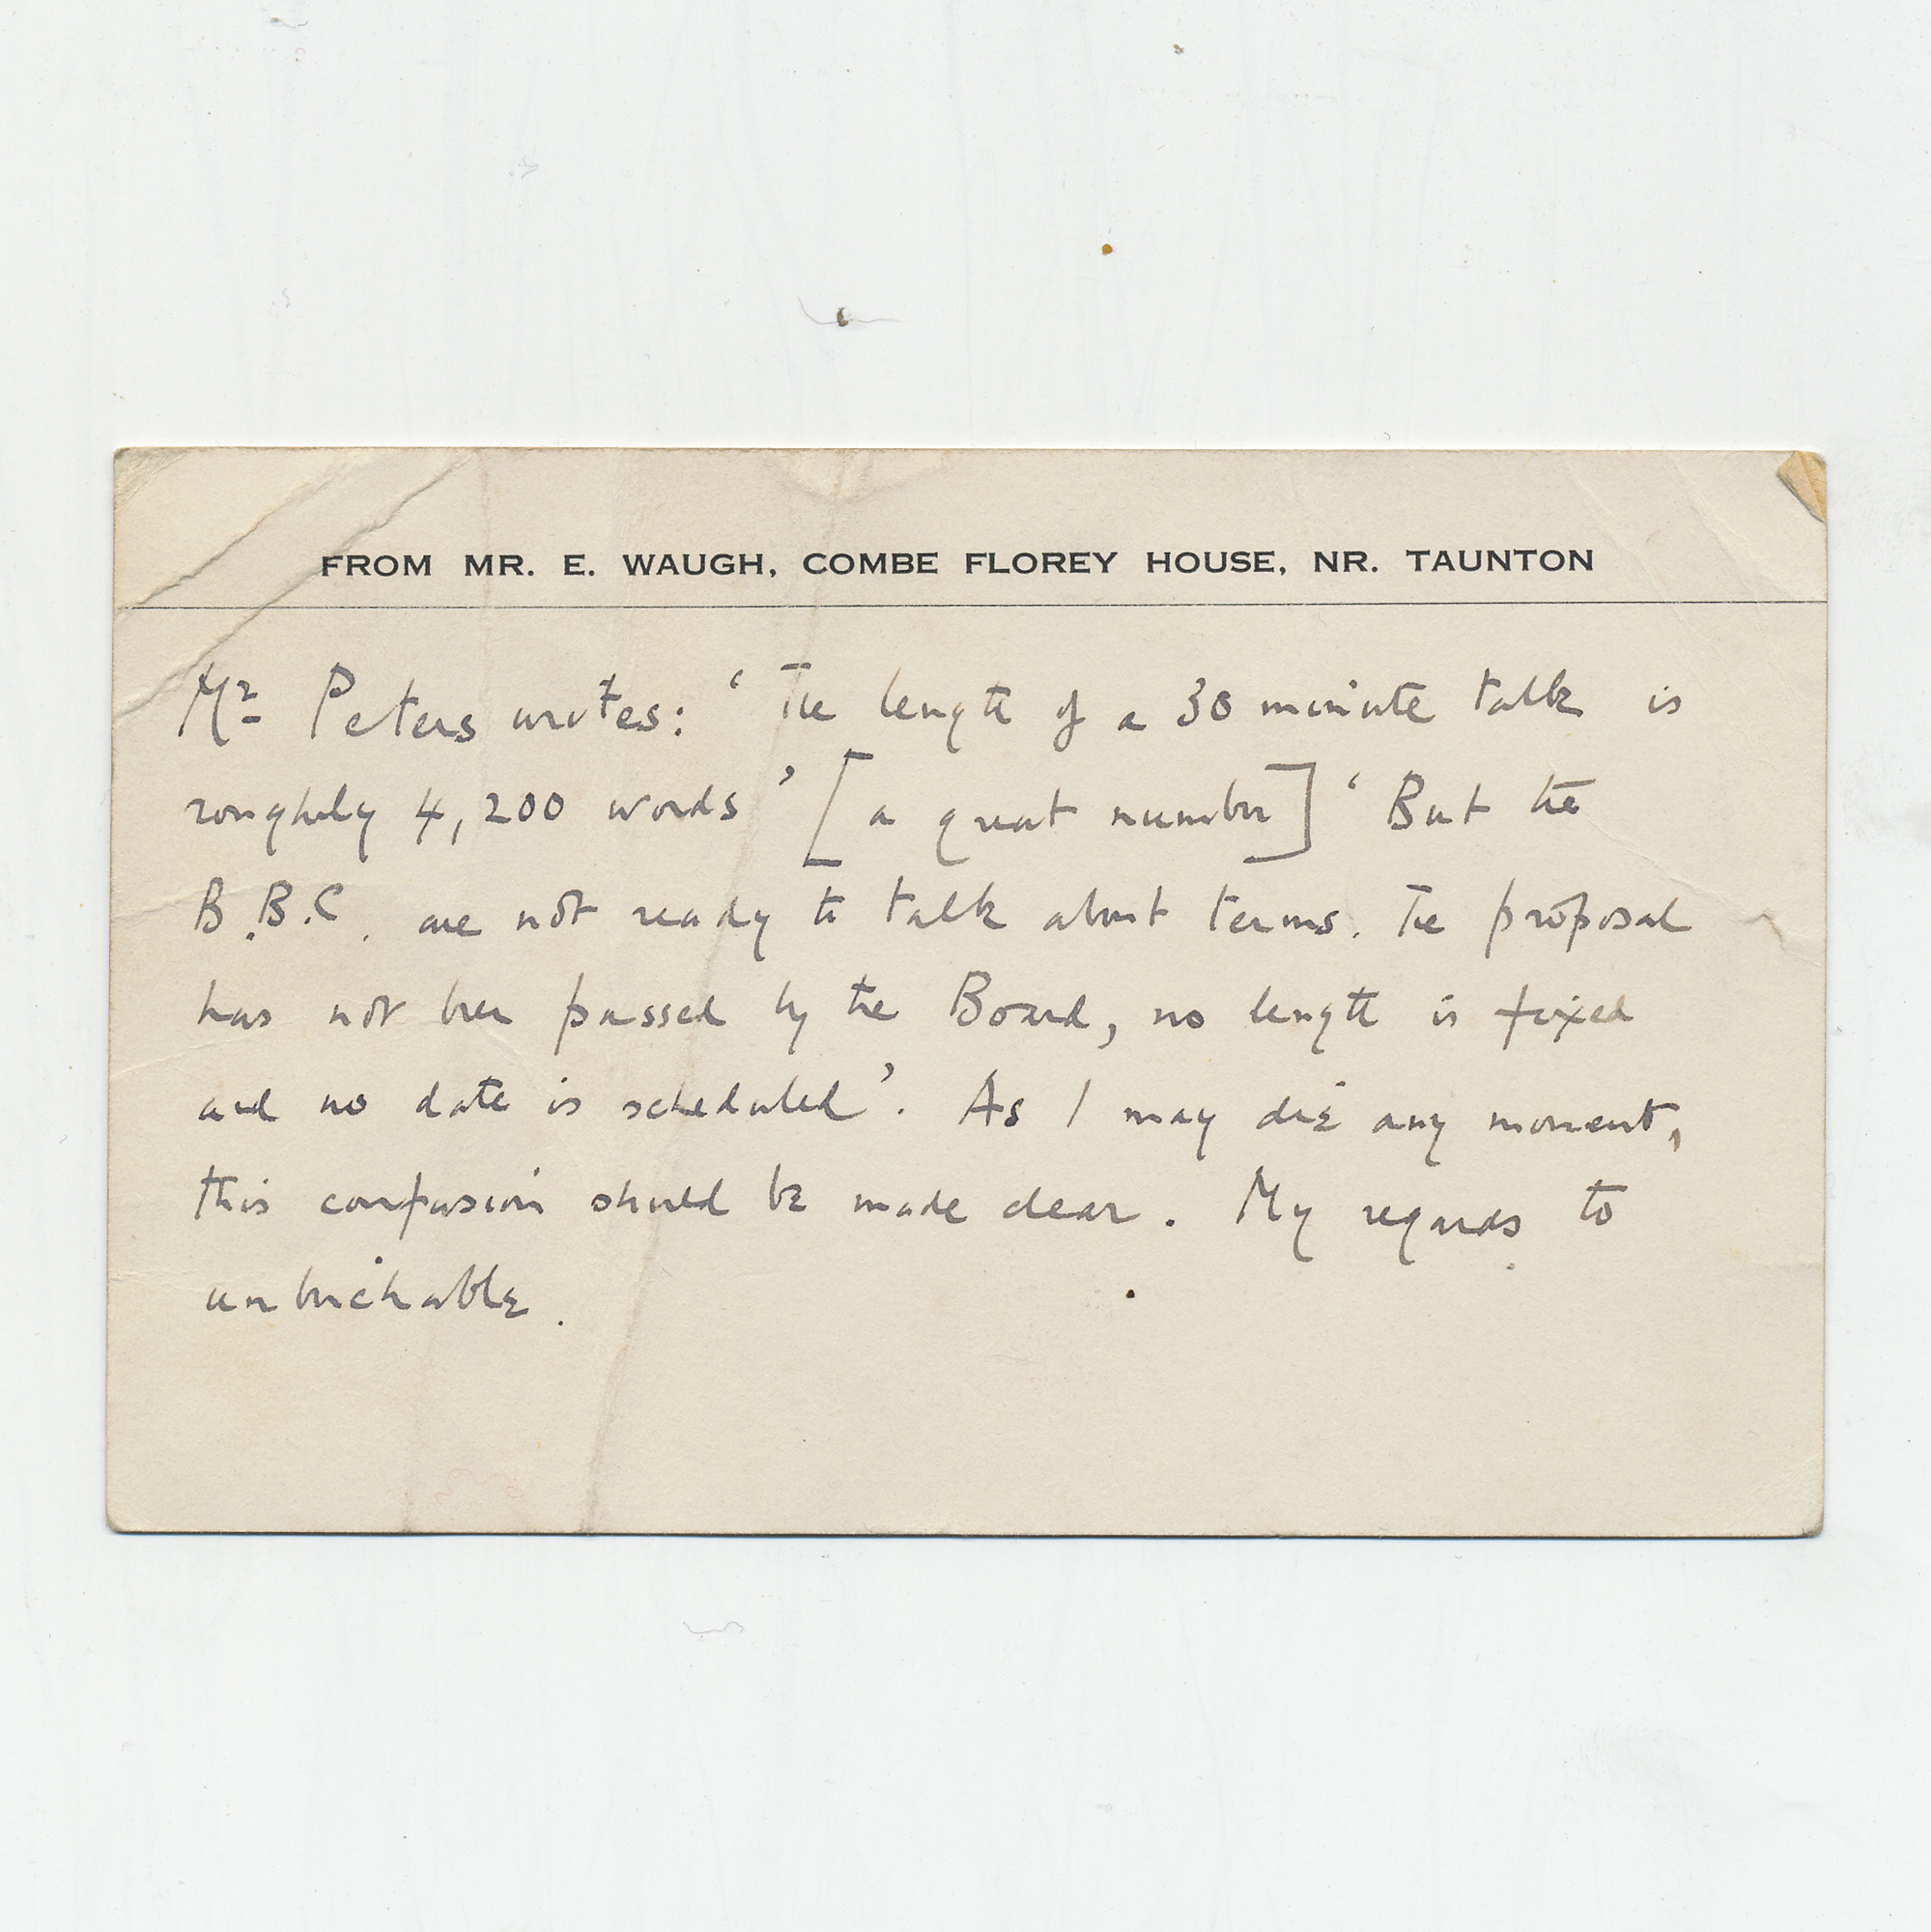 FROM MR. E. WAUGH, COMBE FLOREY HOUSE, NR. TAUNTON
Mr Peters writes: ‘The length of a 30 minute talk is
roughly 4,200 words’ [a great number] ‘But the
B.B.C. are not ready to talk about terms. The proposal
has not been passed by the Board, no length is fixed
and no date is scheduled’. As I may die any moment,
this confusion should be made clear. My regards to